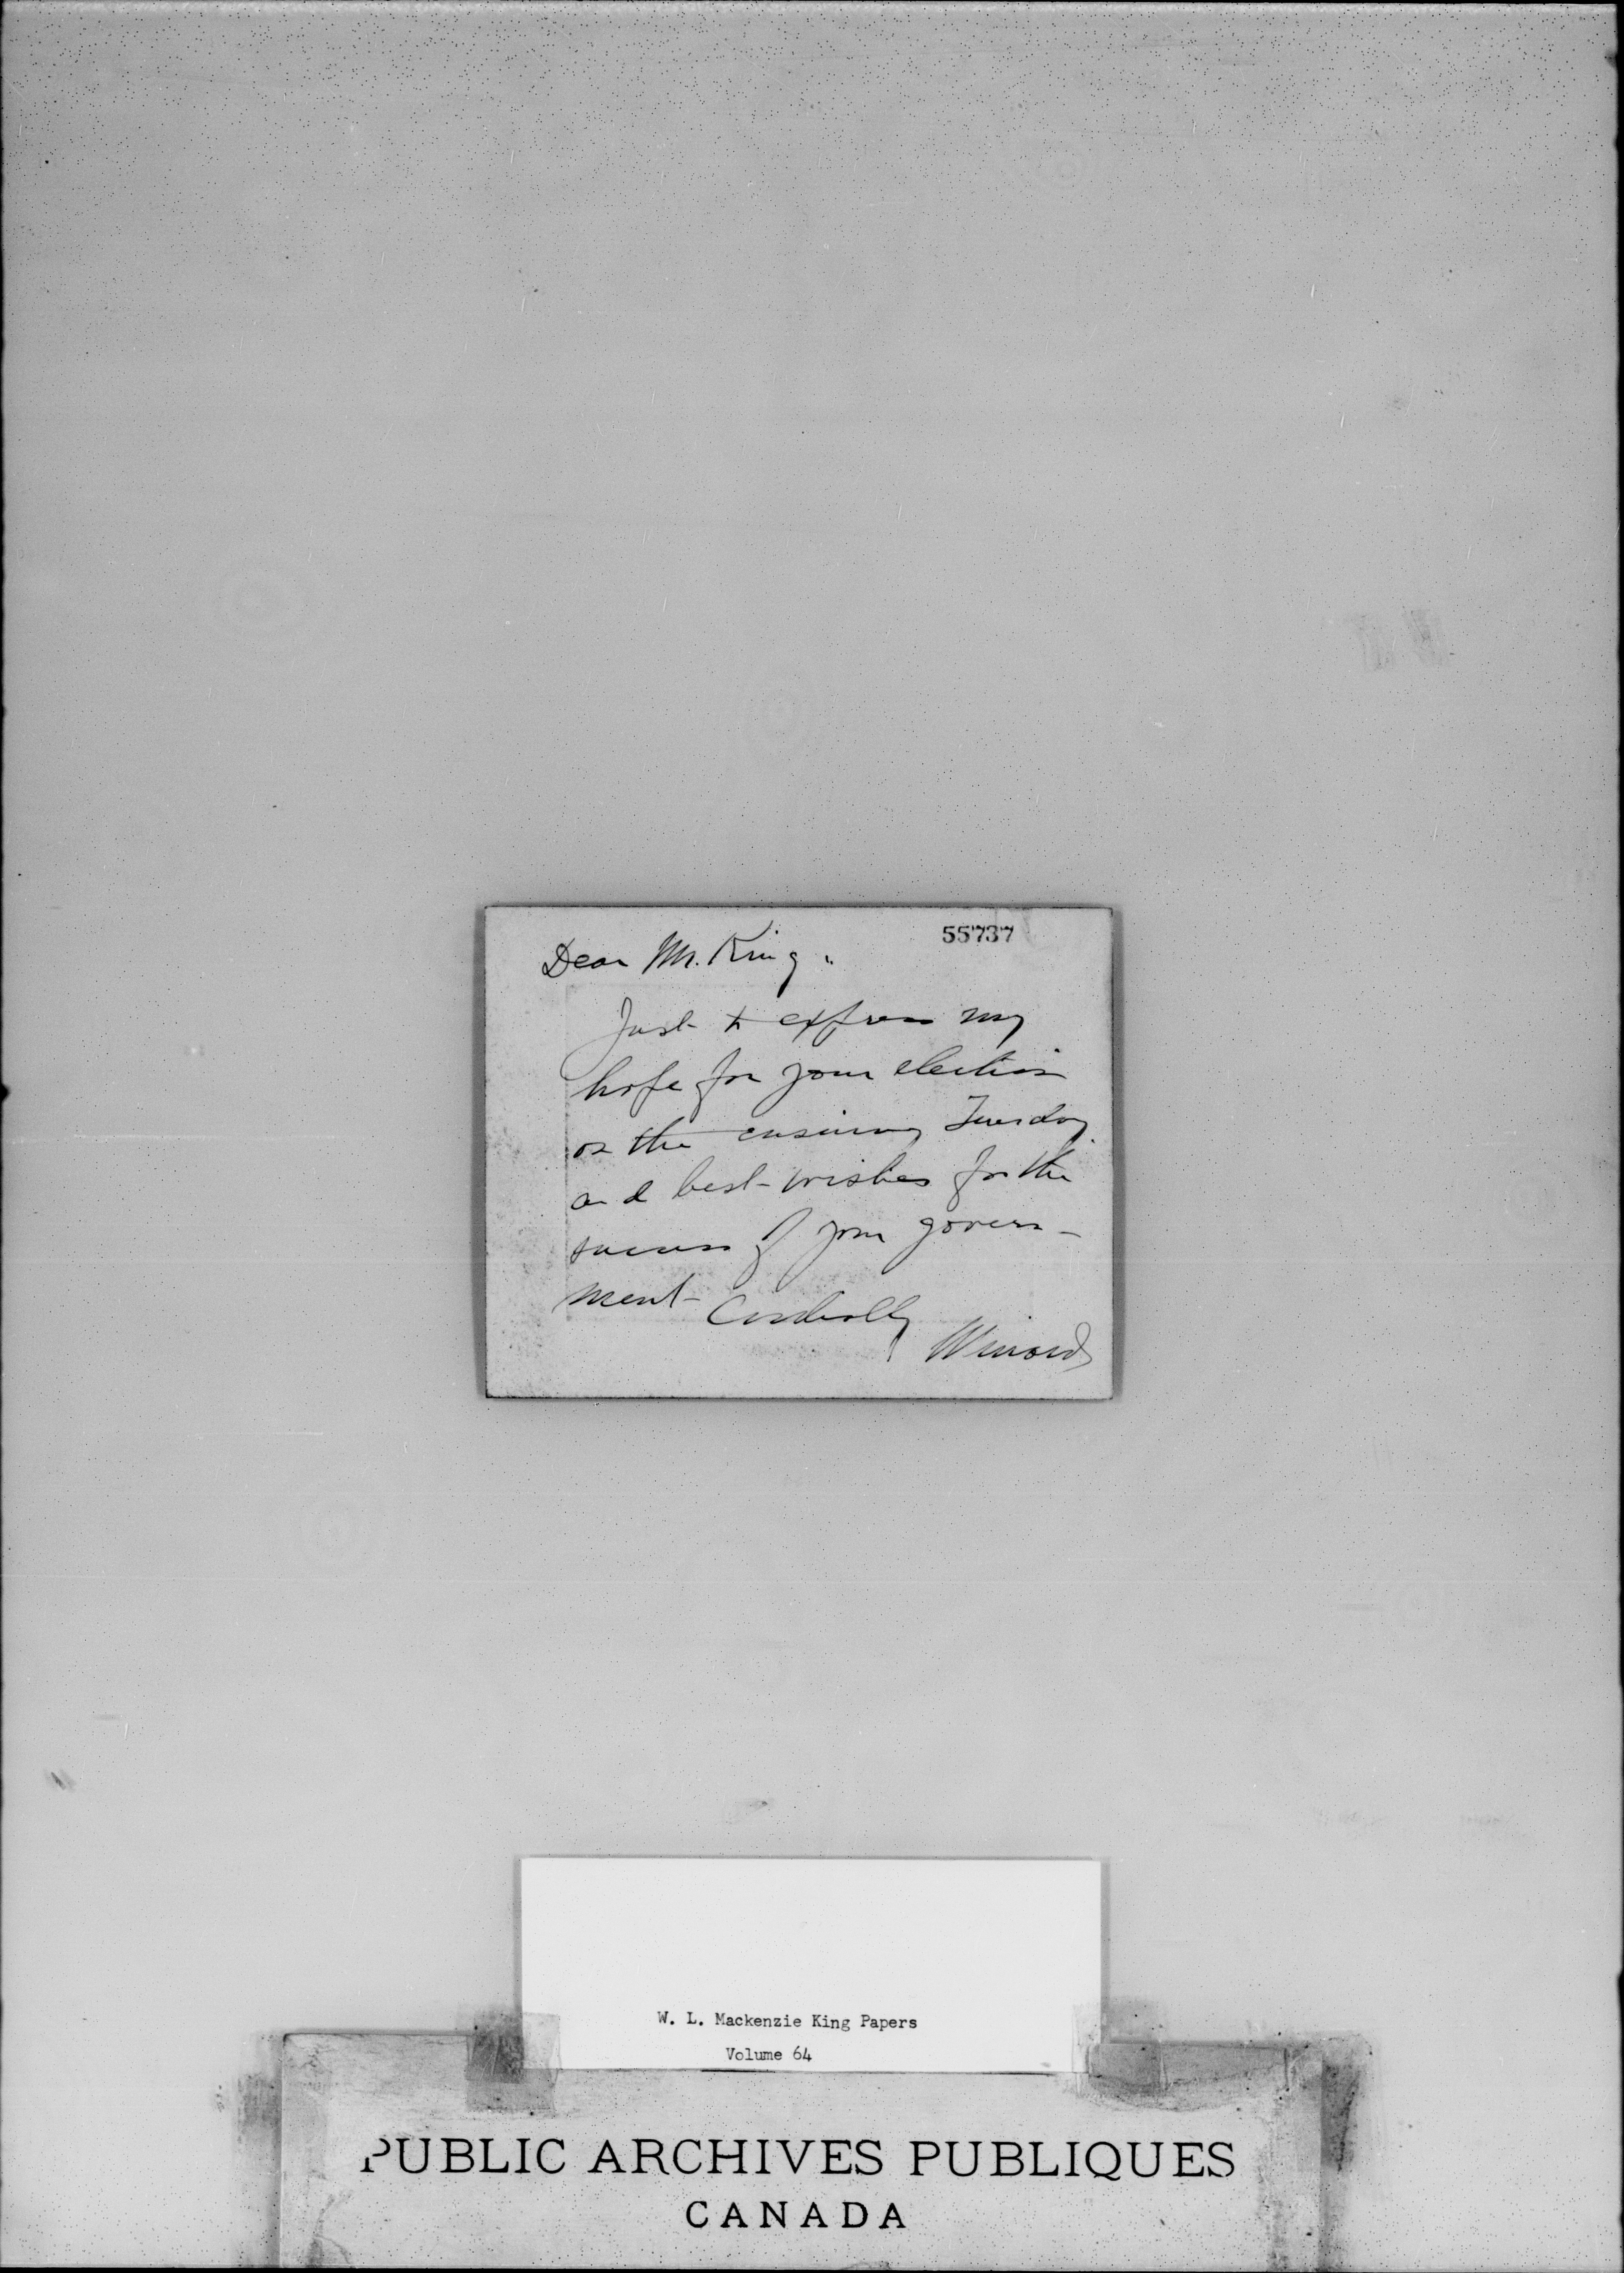 55737
Dear Mr. King,
Just to express my
hope for your election
on the ensuing Tuesday
and best wishes for the
success of your govern-
ment Cordially
W. L. Mackenzie King Papers
Volume 64
PUBLIC ARCHIVES PUBLIQUES
CANADA